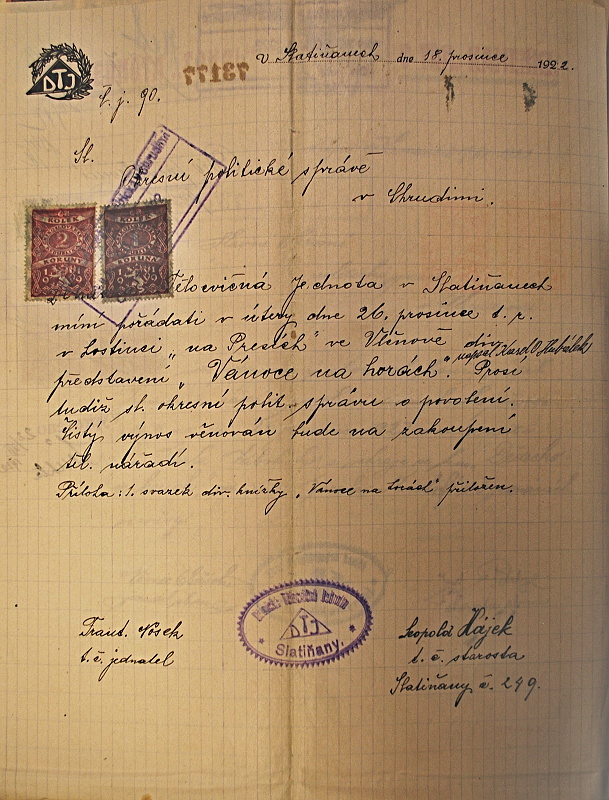 DTJ
V Slatiňanech dne 18. prosince 1922.
73177
č. j. 90.
Sl.
Okresní politické správě
v Chrudimi.
KOLEK
2
KORUNY
KOLEK
1
KORUNA
Tělocvičná Jednota v Slatiňanech
míní pořádati v úterý dne 26. prosince t. r.
v hostinci „na Precích" ve Vlčnově div.
představení „Vánoce na horách". napsal Karel O. Hubálek Prosí
tudíž sl. okresní polit. správu o povolení.
Čistý výnos věnován bude na zakoupení
těl. nářadí.
Příloha: 1. svazek div. knížky „Vánoce na horách" přiložen.
Dělnická Tělocvičná Jednota
DTJ
Slatiňany.
Frant. Nosek
t. č. jednatel
Leopold Hájek
t. č. starosta
Slatiňany č. 249.